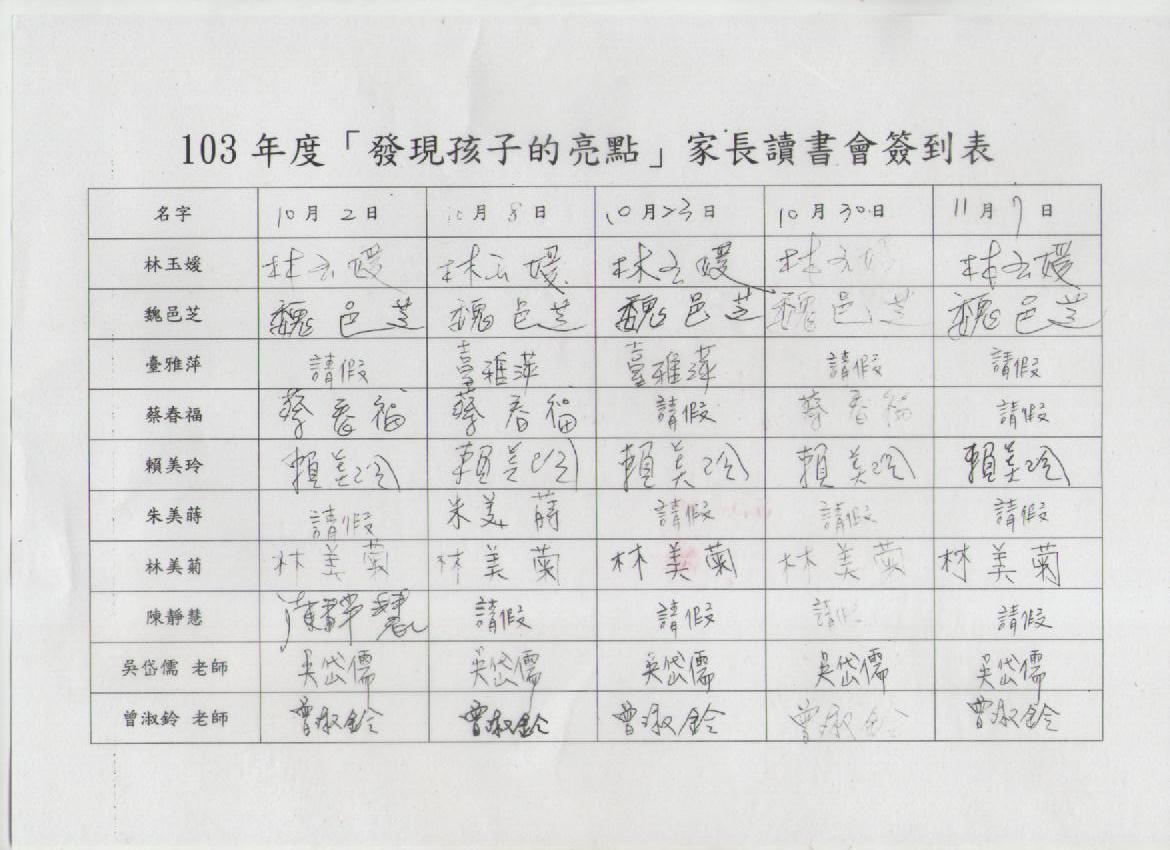 103 年度「發現孩子的亮點」家長讀書會簽到表
名字 10月2日 10月8日 10月23日 10月30日 11月7日
林玉媛 林玉媛 林玉媛 林玉媛 林玉媛 林玉媛
魏邑芝 魏邑芝 魏邑芝 魏邑芝 魏邑芝 魏邑芝
臺雅萍 請假 臺雅萍 臺雅萍 請假 請假
蔡春福 蔡春福 蔡春福 請假 蔡春福 請假
賴美玲 賴美玲 賴美玲 賴美玲 賴美玲 賴美玲
朱美蒔 請假 朱美蒔 請假 請假 請假
林美菊 林美菊 林美菊 林美菊 林美菊 林美菊
陳靜慧 陳靜慧 請假 請假 請假 請假
吳岱儒 老師 吳岱儒 吳岱儒 吳岱儒 吳岱儒 吳岱儒
曾淑鈴 老師 曾淑鈴 曾淑鈴 曾淑鈴 曾淑鈴 曾淑鈴